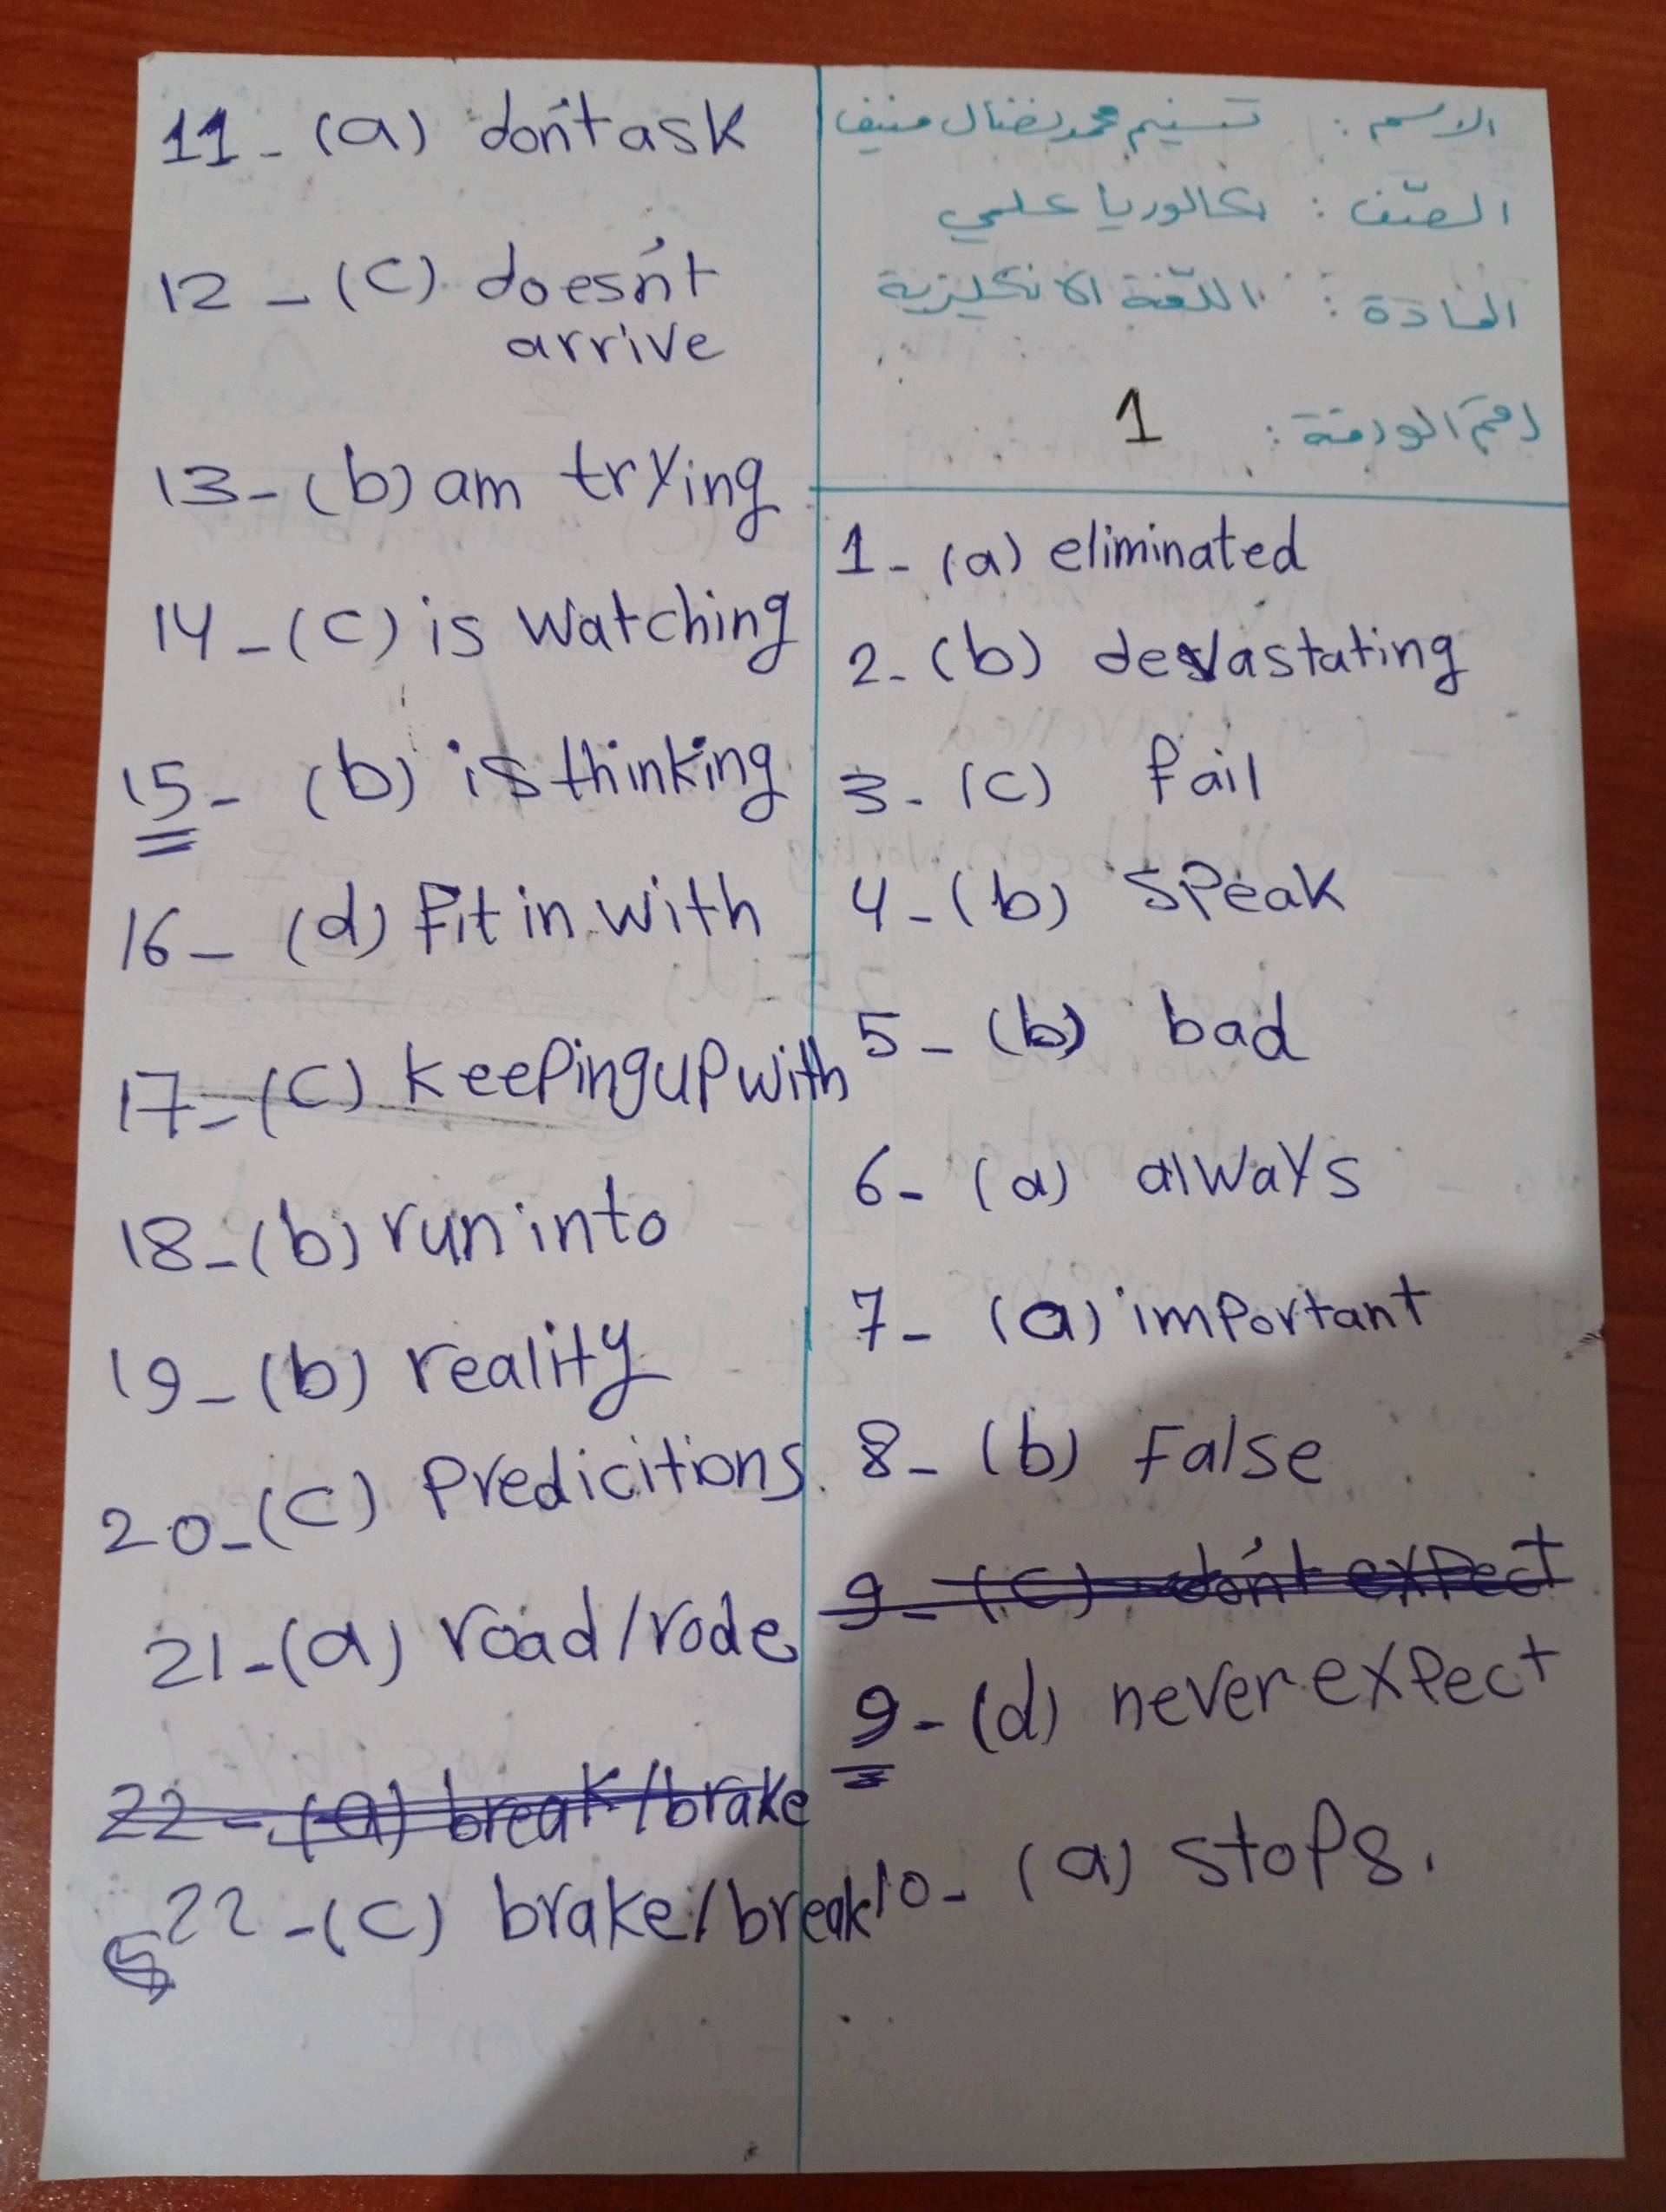 الاسم : تسنيم محمد نضال منيف
الصّف : بكالوريا علمي
المادة : اللّغة الانكليزية
رقم الورقة : 1
1- (a) eliminated
2- (b) devastating
3- (c) fail
4- (b) speak
5- (b) bad
6- (a) always
7- (a) important
8- (b) False
9- (c) don't expect
9- (d) never expect
10- (a) stops.
11- (a) don't ask
12- (c) doesn't
arrive
13- (b) am trying
14- (c) is watching
15- (b) is thinking
16- (d) fit in with
17- (c) keeping up with
18- (b) run into
19- (b) reality
20- (c) Predicitions.
21- (a) road/rode
22- (a) break/brake
22- (c) brake/break